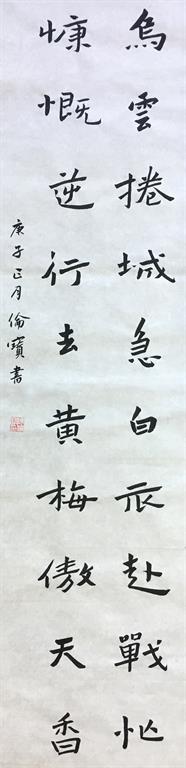 烏雲捲城急白衣赴戰忙
慷慨逆行去黃梅傲天香
庚子正月倫寶書